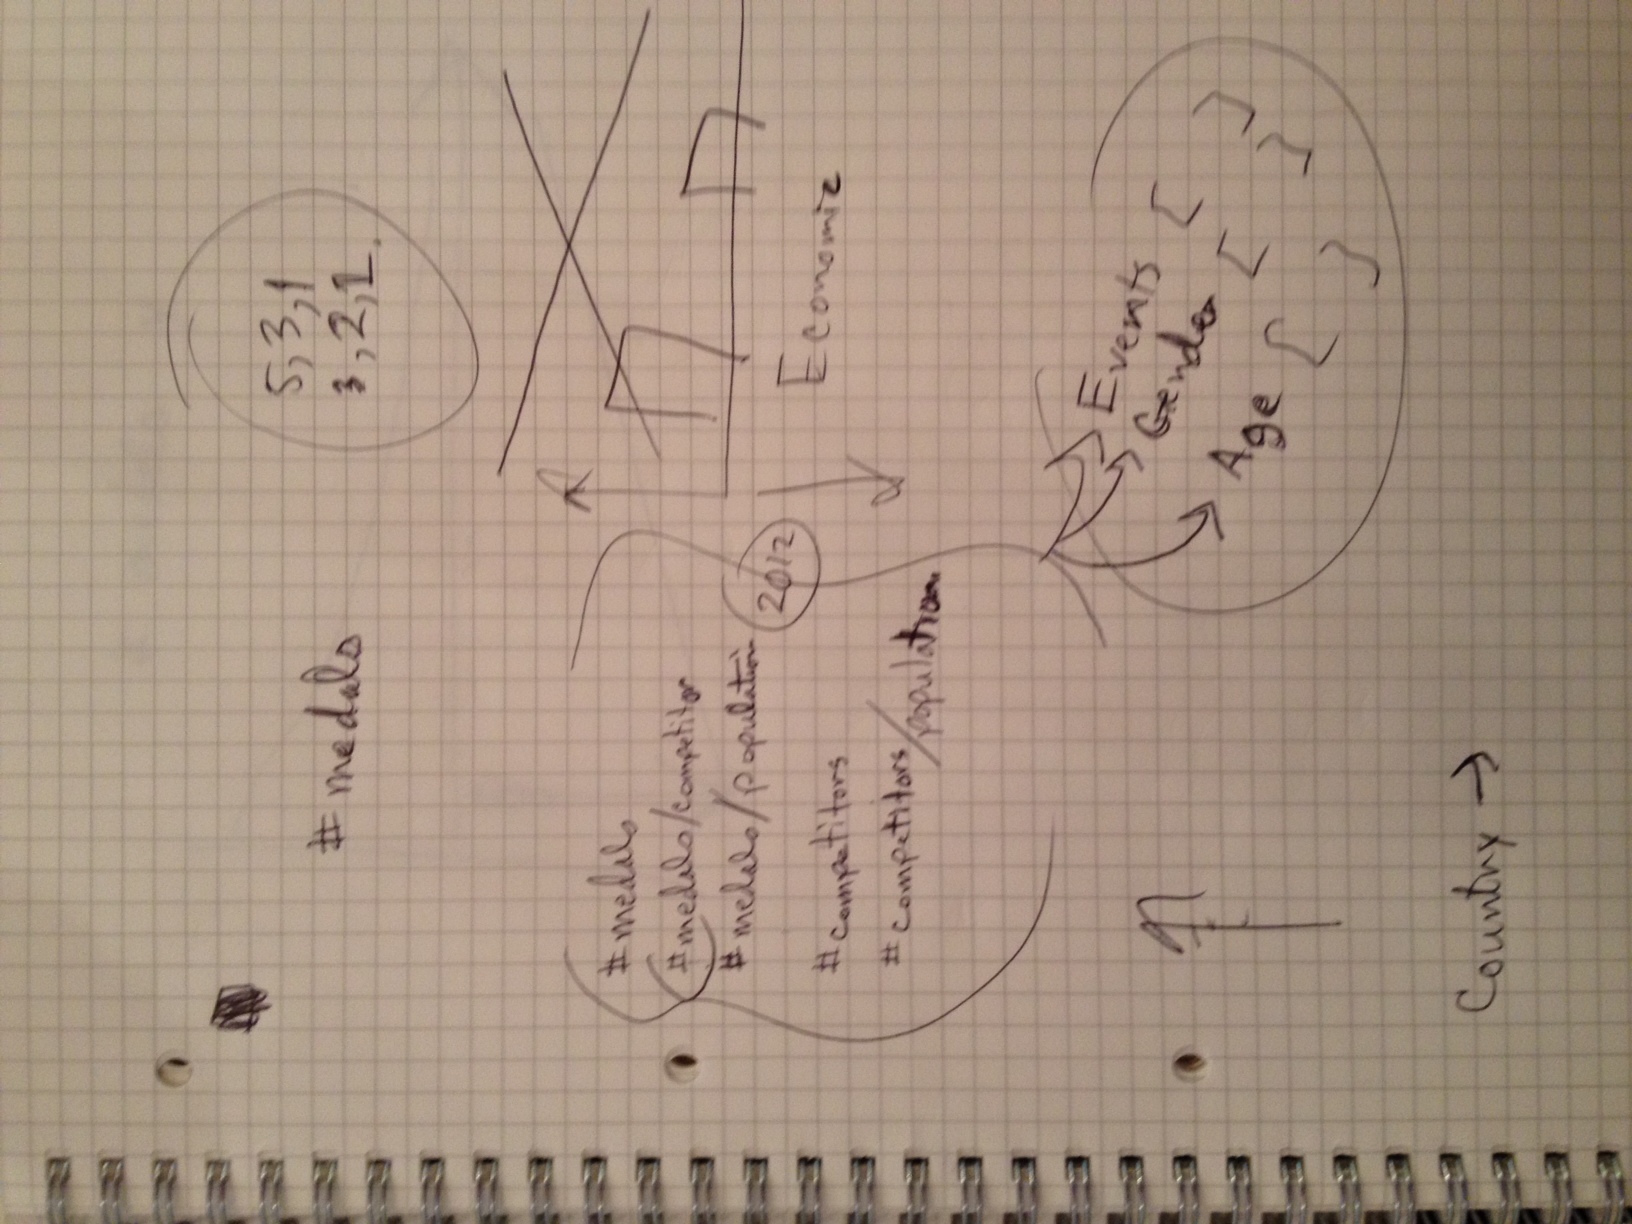 # medals
5, 3, 1
3, 2, 1
# medals
# medals/competitor
# medals/population
2012
# competitors
# competitors/population
Economic
Events { }
Gender { }
Age { }
Country →